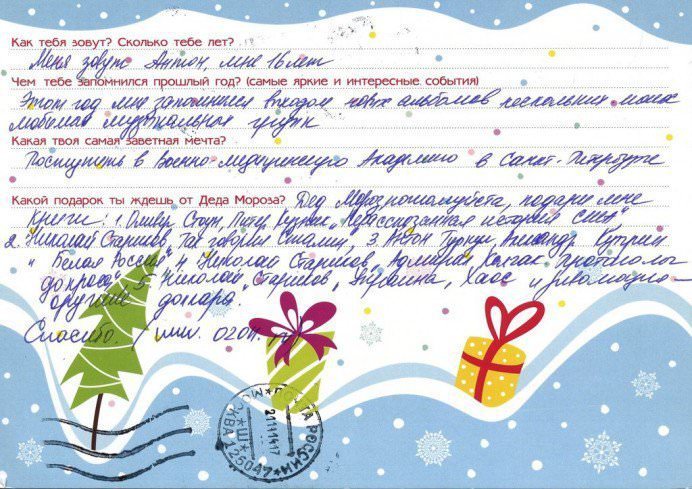 Как тебя зовут? Сколько тебе лет?
Меня зовут Антон, мне 16 лет
Чем тебе запомнился прошлый год? (самые яркие и интересные события)
Этот год мне запомнился выходом новых альбомов нескольких моих
любимых музыкальных групп
Какая твоя самая заветная мечта?
Поступить в Военно-медицинскую Академию в Санкт-Петербурге
Какой подарок ты ждешь от Деда Мороза? Дед Мороз пожалуйста, подари мне
книги: 1. Оливер Стоун, Питер Кузник „Нерассказанная история США"
2. Николай Стариков, Так говорил Сталин, 3. Антон Туркул, Александр Куприн
„Белая Россия" 4. Николай Стариков, Адмирал Колчак. Протоколы
допроса", 5. Николай „Стариков, Украина, Хаос и революция -
оружие доллара.
Спасибо.
ПОЧТА РОССИИ
МОСКВА 125047
211114 17